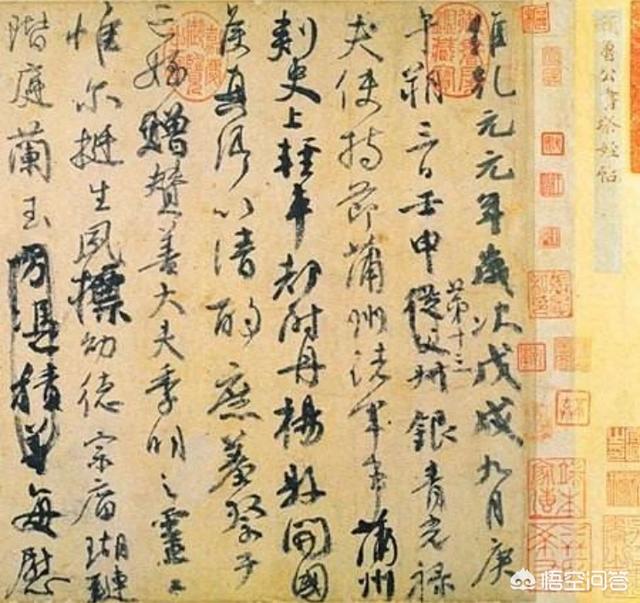 顏魯公書祭姪帖
維乾元元年歲次戊戌九月庚
午朔三日壬申第十三從父銀青光祿
夫使持節蒲州諸軍事蒲州
刺史上輕車都尉丹楊縣開國
侯真卿以清酌庶羞祭于
亡姪贈贊善大夫季明之靈曰
惟爾挺生夙標幼德宗廟瑚璉
階庭蘭玉方憑積善每慰
悟空问答